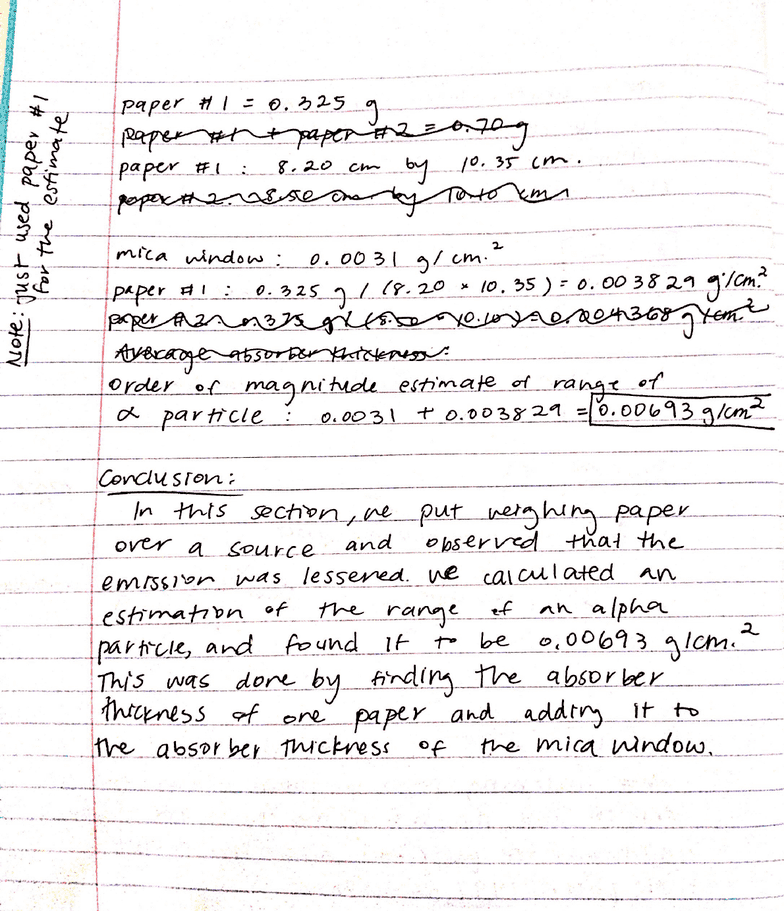 Note: Just used paper #1
for the estimate
paper #1 = 0.325 g
paper #1 + paper #2 = 0.70 g
paper #1 : 8.20 cm by 10.35 cm.
paper #2: 8.50 cm by 10.10 cm
mica window : 0.0031 g/cm.²
paper #1 : 0.325 g / (8.20 × 10.35) = 0.003829 g/cm.²
paper #2: 0.375 g / (8.50 × 10.10) = 0.004368 g/cm.²
Average absorber thickness:
order of magnitude estimate of range of
α particle : 0.0031 + 0.003829 = 0.00693 g/cm²
Conclusion:
In this section, we put weighing paper
over a source and observed that the
emission was lessened. We calculated an
estimation of the range of an alpha
particle, and found it to be 0.00693 g/cm.²
This was done by finding the absorber
thickness of one paper and adding it to
the absorber thickness of the mica window.